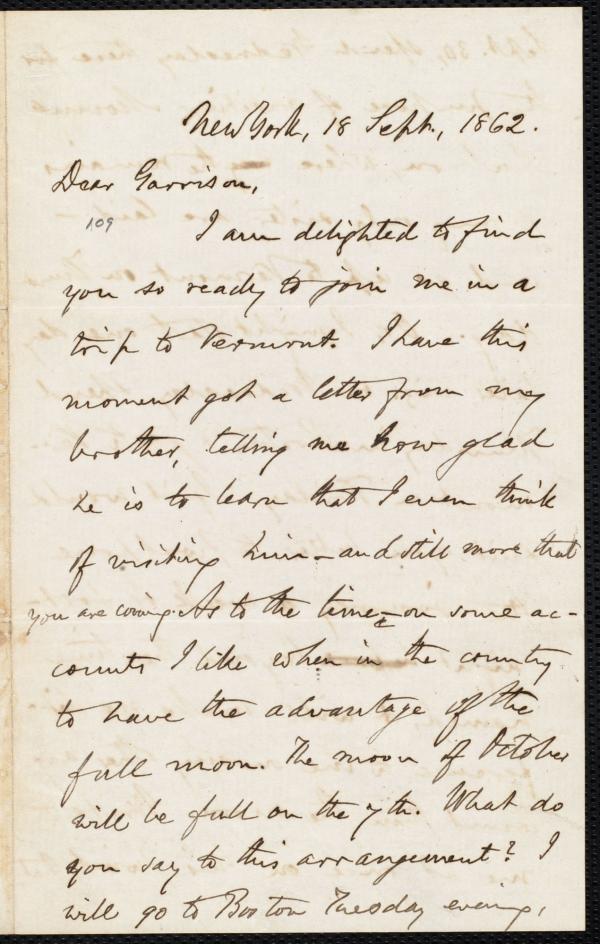 New York, 18 Sept., 1862.
Dear Garrison,
109
I am delighted to find
you so ready to join me in a
trip to Vermont. I have this
moment got a letter from my
brother, telling me how glad
he is to learn that I even think
of visiting him - and still more that
you are coming. As to the time - on some ac-
counts I like when in the country
to have the advantage of the
full moon. The moon of October
will be full on the 7th. What do
you say to this arrangement? I
will go to Boston Tuesday evening,